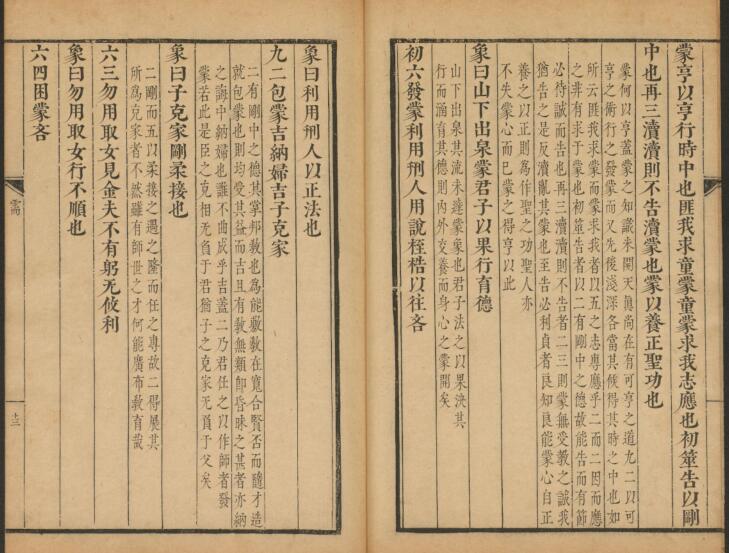 蒙亨以亨行時中也匪我求童蒙童蒙求我志應也初筮告以剛
中也再三瀆瀆則不告瀆蒙也蒙以養正聖功也
蒙何以亨蓋蒙之知識未開天眞尚在有可亨之道九二以可
亨之術行之發蒙而又先後淺深各當其候得其時之中也如
所云匪我求蒙而蒙求我者以五之志專應乎二而二因而應
之非有求于蒙也初筮告者以二有剛中之德故能告而有節
必待誠而告也再三瀆瀆則不告者二三則蒙無受教之誠我
猶告之是反瀆亂其蒙也至告必利貞者良知良能蒙心自正
養之以正則為作聖之功聖人亦
不失蒙心而已蒙之得亨以此
象曰山下出泉蒙君子以果行育德
山下出泉其流未達蒙象也君子法之以果決其
行而涵育其德則內外交養而身心之蒙開矣
初六發蒙利用刑人用說桎梏以往吝
象曰利用刑人以正法也
九二包蒙吉納婦吉子克家
二有剛中之德其掌邦教也為能敷教在寬合賢否而隨才造
就包蒙也則均受其益而吉且有教無類卽昏昧之甚者亦納
之誨中納婦也誰不曲成乎吉蓋二乃君任之以作師者發
蒙若此是臣之克相无負于君猶子之克家无負于父矣
象曰子克家剛柔接也
二剛而五以柔接之遇之隆而任之專故二得展其
所為克家者不然雖有師世之才何能廣布教育哉
六三勿用取女見金夫不有躬无攸利
象曰勿用取女行不順也
六四困蒙吝
需
十三